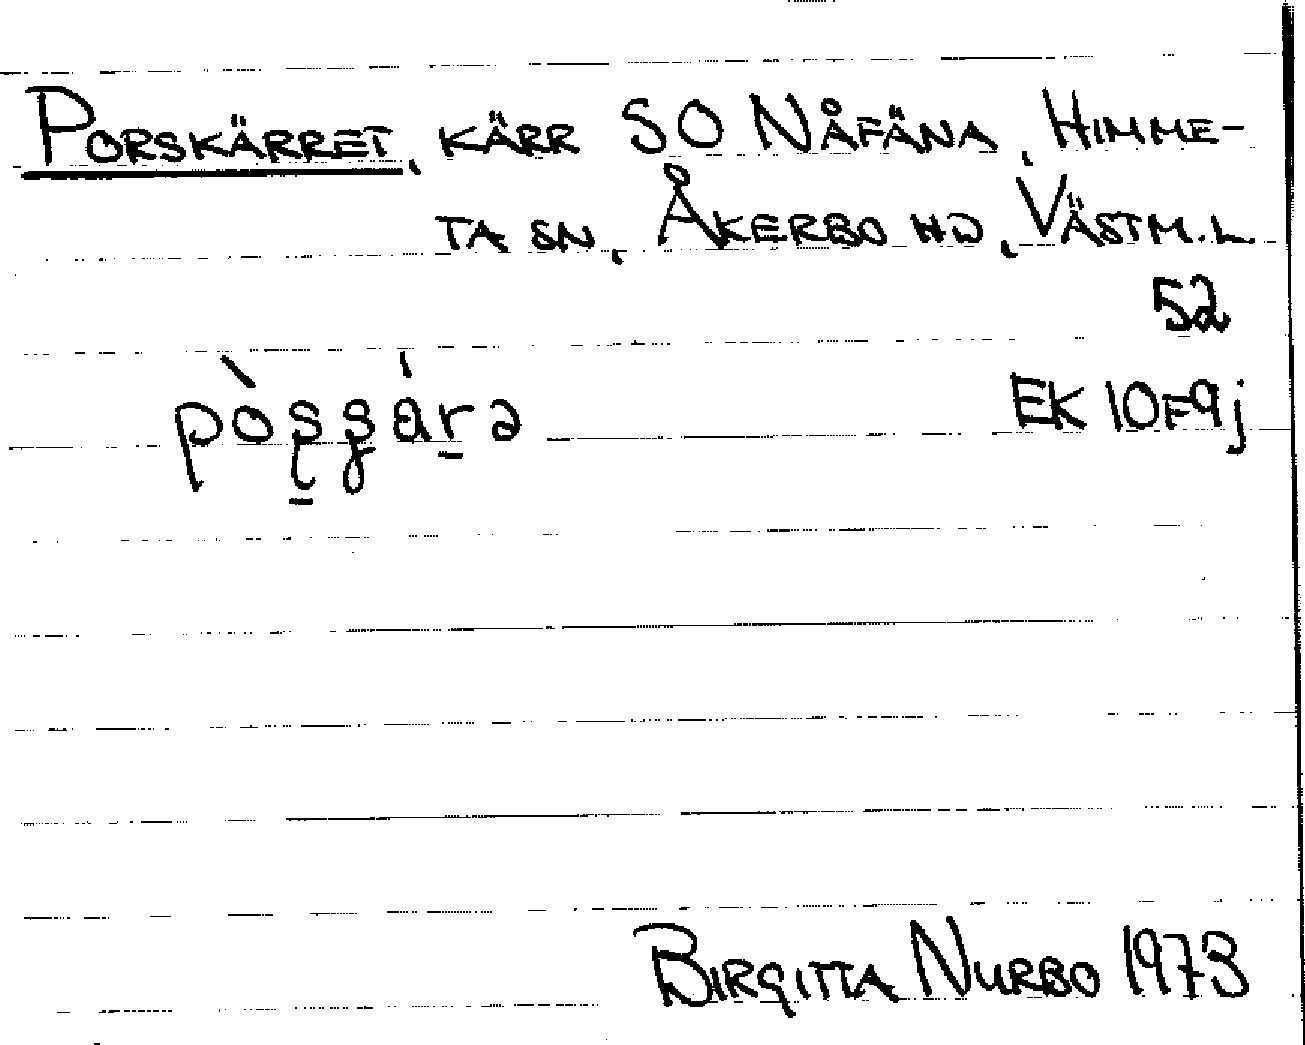 PORSKÄRRET, KÄRR SO NÅFÄNA, HIMME-
TA SN, ÅKERBO HD, VÄSTM.L.
52
EK 10F9j
BIRGITTA NURBO 1973